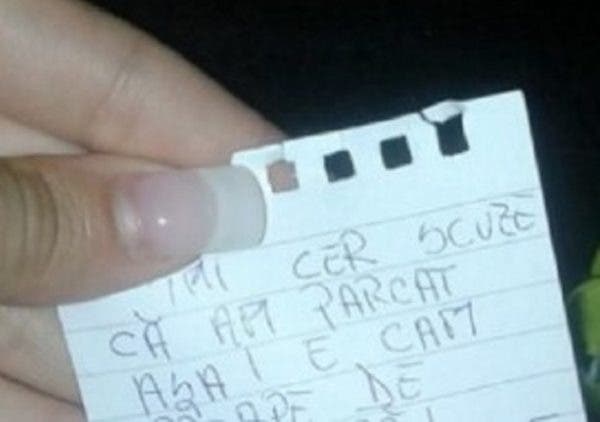 ÎMI CER SCUZE
CĂ AM PARCAT
AȘA I E CAM
DE